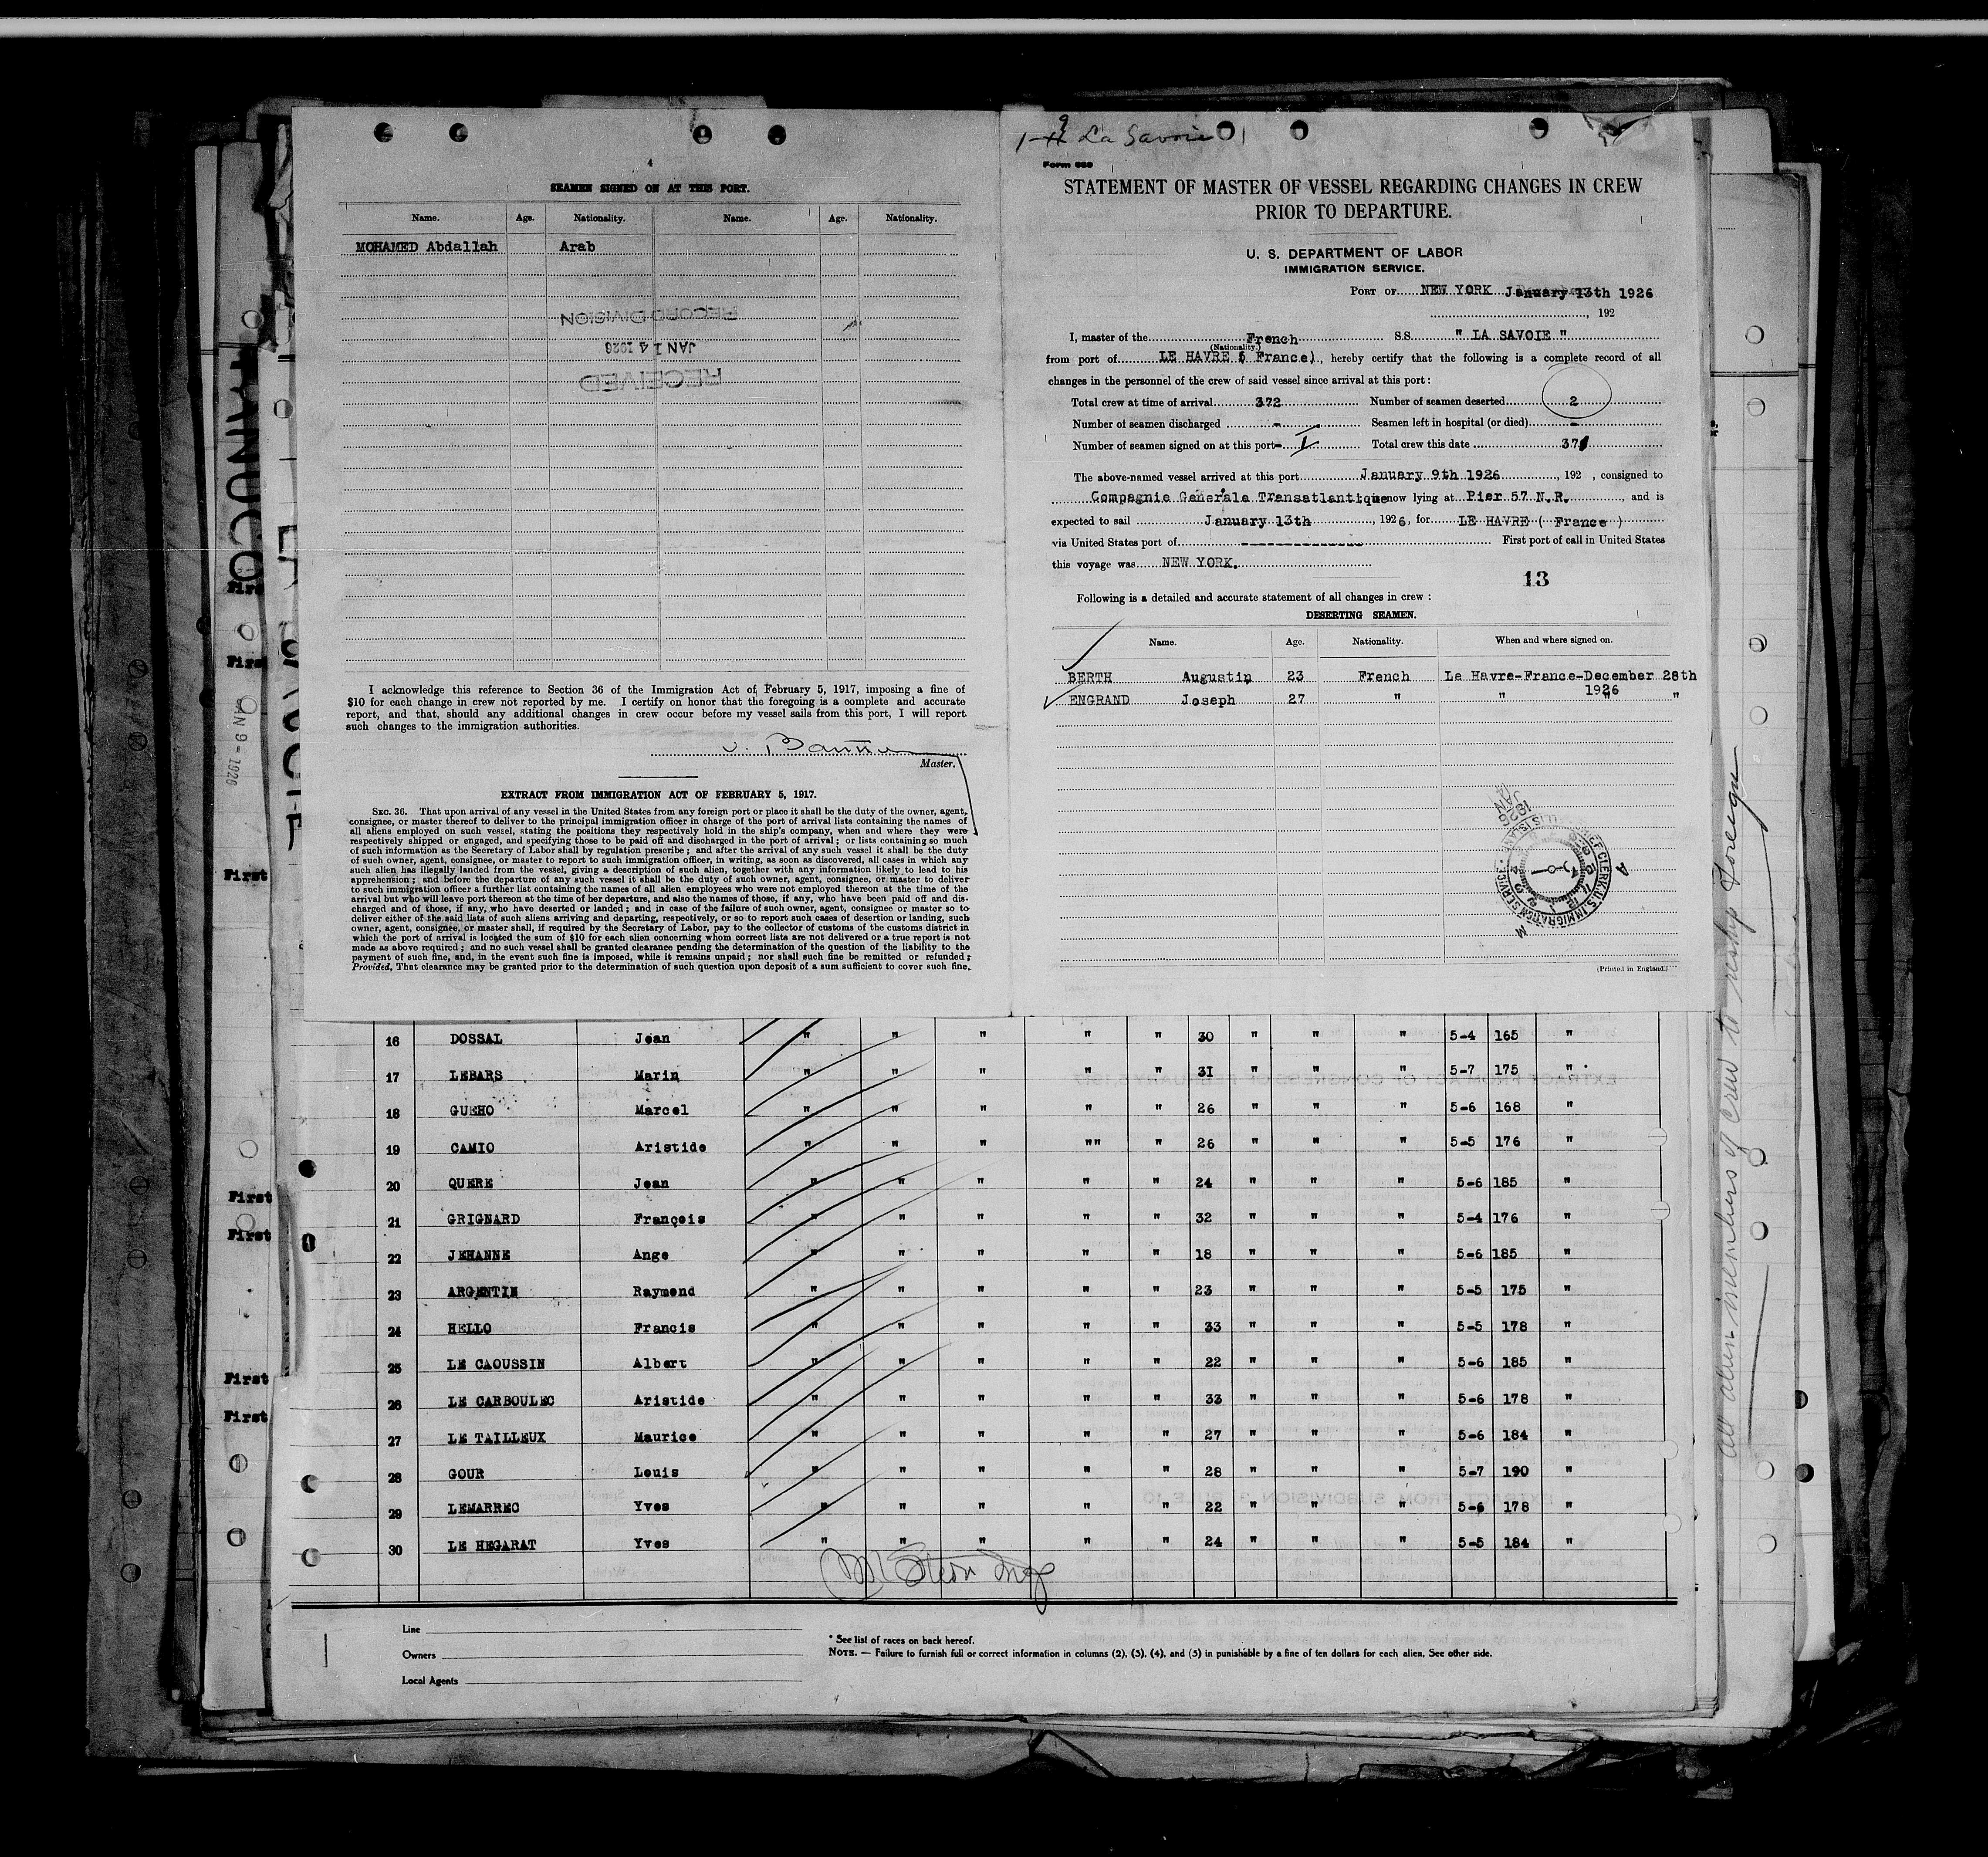 4
SEAMEN SIGNED ON AT THIS PORT.
Name. Age. Nationality. Name. Age. Nationality.
MOHAMED Abdallah Arab
RECORD DIVISION
JAN 14 1926
RECEIVED
I acknowledge this reference to Section 36 of the Immigration Act of February 5, 1917, imposing a fine of
$10 for each change in crew not reported by me. I certify on honor that the foregoing is a complete and accurate
report, and that, should any additional changes in crew occur before my vessel sails from this port, I will report
such changes to the immigration authorities.
Master.
EXTRACT FROM IMMIGRATION ACT OF FEBRUARY 5, 1917.
SEC. 36. That upon arrival of any vessel in the United States from any foreign port or place it shall be the duty of the owner, agent,
consignee, or master thereof to deliver to the principal immigration officer in charge of the port of arrival lists containing the names of
all aliens employed on such vessel, stating the positions they respectively hold in the ship's company, when and where they were
respectively shipped or engaged, and specifying those to be paid off and discharged in the port of arrival; or lists containing so much
of such information as the Secretary of Labor shall by regulation prescribe; and after the arrival of any such vessel it shall be the duty
of such owner, agent, consignee, or master to report to such immigration officer, in writing, as soon as discovered, all cases in which any
such alien has illegally landed from the vessel, giving a description of such alien, together with any information likely to lead to his
apprehension; and before the departure of any such vessel it shall be the duty of such owner, agent, consignee, or master to deliver
to such immigration officer a further list containing the names of all alien employees who were not employed thereon at the time of the
arrival but who will leave port thereon at the time of her departure, and also the names of those, if any, who have been paid off and dis-
charged and of those, if any, who have deserted or landed; and in case of the failure of such owner, agent, consignee or master so to
deliver either of the said lists of such aliens arriving and departing, respectively, or so to report such cases of desertion or landing, such
owner, agent, consignee, or master shall, if required by the Secretary of Labor, pay to the collector of customs of the customs district in
which the port of arrival is located the sum of $10 for each alien concerning whom correct lists are not delivered or a true report is not
made as above required; and no such vessel shall be granted clearance pending the determination of the question of the liability to the
payment of such fine, and, in the event such fine is imposed, while it remains unpaid; nor shall such fine be remitted or refunded;
Provided, That clearance may be granted prior to the determination of such question upon deposit of a sum sufficient to cover such fine.
La Savoie
Form 689
STATEMENT OF MASTER OF VESSEL REGARDING CHANGES IN CREW
PRIOR TO DEPARTURE.
U. S. DEPARTMENT OF LABOR
IMMIGRATION SERVICE.
PORT OF NEW YORK January 13th 1926
, 192
I, master of the French SS. " LA SAVOIE "
(Nationality.)
from port of LE HAVRE ( France) , hereby certify that the following is a complete record of all
changes in the personnel of the crew of said vessel since arrival at this port:
Total crew at time of arrival 372 Number of seamen deserted 2
Number of seamen discharged - Seamen left in hospital (or died) -
Number of seamen signed on at this port- I Total crew this date 371
The above-named vessel arrived at this port January 9th 1926 , 192 , consigned to
Compagnie Générale Transatlantique now lying at Pier 57 N.R. , and is
expected to sail January 13th , 1926, for LE HAVRE ( France )
via United States port of ---------------- First port of call in United States
this voyage was NEW YORK.
13
Following is a detailed and accurate statement of all changes in crew:
DESERTING SEAMEN.
Name. Age. Nationality. When and where signed on.
BERTH Augustin 23 French Le Havre-France-December 28th
1926
ENGRAND Joseph 27 " " " "
(Printed in England.)
16 DOSSAL Jean " " " " " 30 " " " 5-4 165 "
17 LEBARS Marin " " " " " 31 " " " 5-7 175 "
18 GUEHO Marcel " " " " " 26 " " " 5-6 168 "
19 CAMIO Aristide " " " "" " 26 " " " 5-5 176 "
20 QUERE Jean " " " " " 24 " " " 5-6 185 "
21 GRIGNARD François " " " " " 32 " " " 5-4 176 "
22 JEHANNE Ange " " " " " 18 " " " 5-6 185 "
23 ARGENTIN Raymond " " " " 23 " " " 5-5 175 "
24 HELLO Francis " " " " " 33 " " " 5-5 178 "
25 LE CAOUSSIN Albert " " " " " 22 " " " 5-6 185 "
26 LE CARBOULEC Aristide " " " " " 33 " " " 5-6 178 "
27 LE TAILLEUX Maurice " " " " " 27 " " " 5-6 184 "
28 GOUR Louis " " " " " 28 " " " 5-7 190 "
29 LEMARREC Yves " " " " " 22 " " " 5-6 178 "
30 LE HEGARAT Yves " " " " " 24 " " " 5-5 184 "
Line
Owners
Local Agents
* See list of races on back hereof.
NOTE. — Failure to furnish full or correct information in columns (2), (3), (4), and (5) in punishable by a fine of ten dollars for each alien, See other side.
First
First
First
First
First
First
First
JAN 9 - 1926
All alien members of crew to reship Foreign